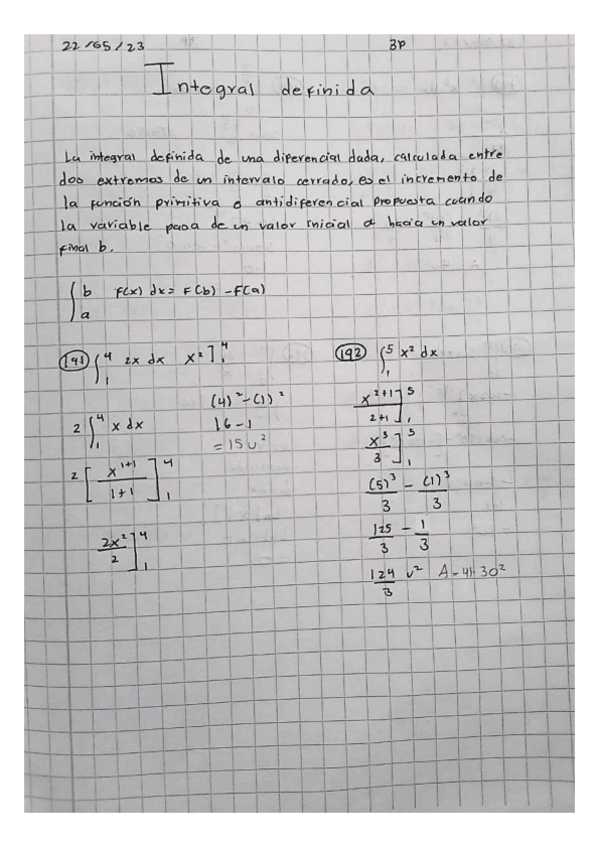 22/05/23 3P
Integral definida
La integral definida de una diferencial dada, calculada entre
dos extremos de un intervalo cerrado, es el incremento de
la función primitiva o antidiferencial propuesta cuando
la variable pasa de un valor inicial a hacia un valor
final b.
∫ b F(x) dx = F(b) - F(a)
a
191 ∫₁⁴ 2x dx x² ]₁⁴
(4)² - (1)²
2 ∫₁⁴ x dx 16 - 1
= 15 u²
2 [ x¹⁺¹ / 1+1 ]₁⁴
2x² / 2 ]₁⁴
192 ∫₁⁵ x² dx
x²⁺¹ / 2+1 ]₁⁵
x³ / 3 ]₁⁵
(5)³ / 3 - (1)³ / 3
125 / 3 - 1 / 3
124 / 3 u²